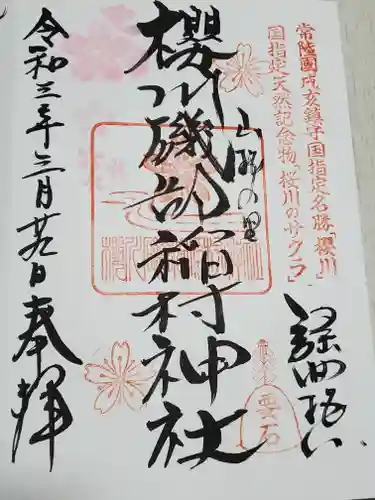 常陸國戌亥鎮守国指定名勝「櫻川」
国指定天然記念物「桜川のサクラ」
山桜の里
櫻川磯部稲村神社
要石
令和三年三月廿九日奉拝